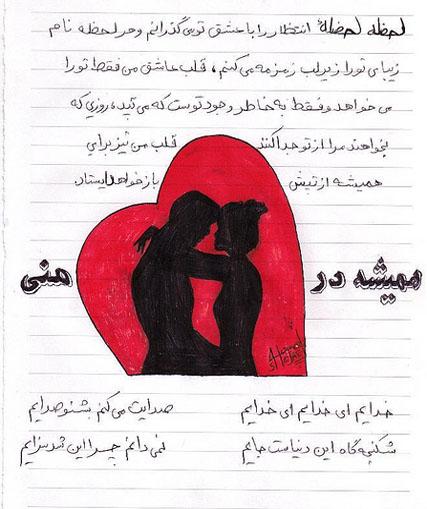 لحظه لحظهٔ انتظار را با عشق تو می گذرانم و هر لحظه نام
زیبای تو را زیر لب زمزمه می کنم، قلب عاشق من فقط تو را
می خواهد و فقط به خاطر وجود توست که می تپد، روزی که
بخواهند مرا از تو جدا کنند قلب من نیز برای
همیشه از تپش باز خواهد ایستاد
همیشه در منی
خدایم ای خدایم ای خدایم صدایت می کنم بشنو صدایم
شکنجه گاه این دنیاست جایم نمی دانم چرا این شد سزایم